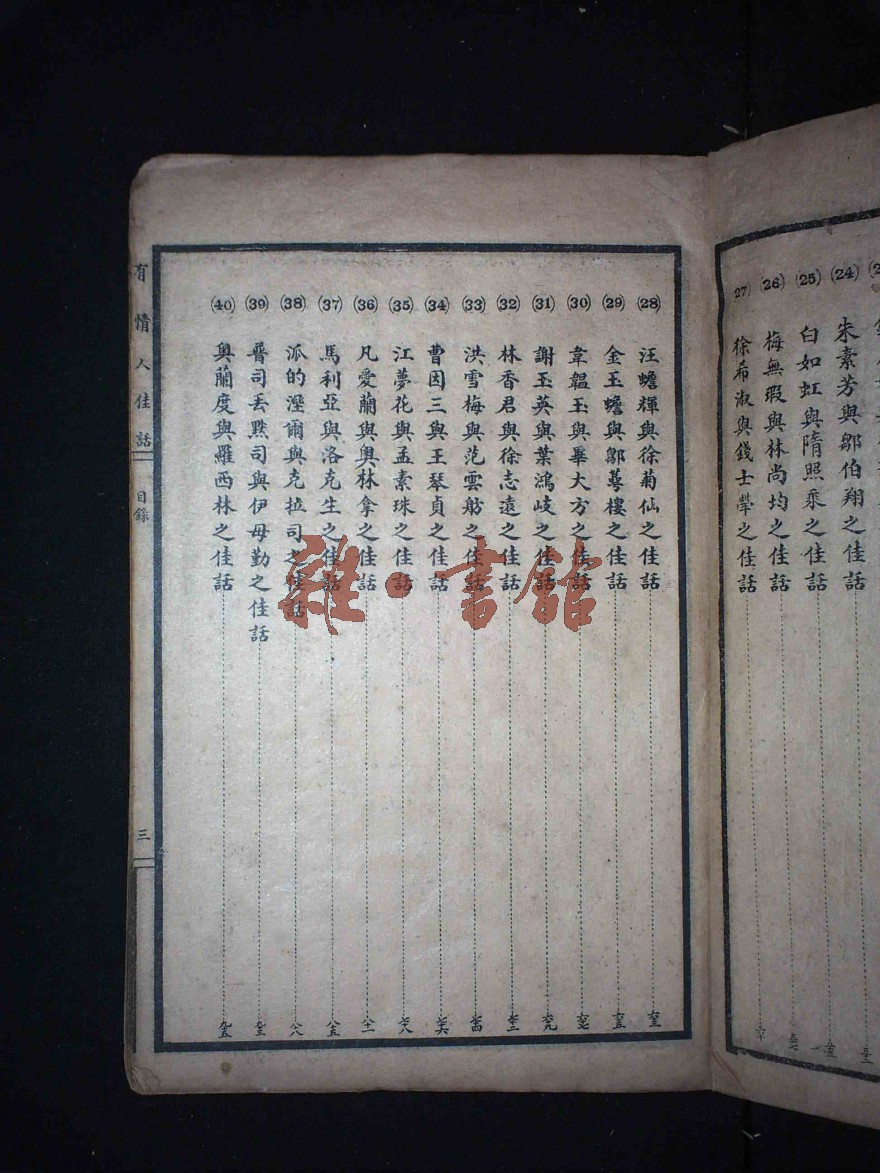 (24) 朱素芳與鄒伯翔之佳話
(25) 白如虹與隋照乘之佳話
(26) 梅無瑕與林尚均之佳話
27) 徐希淑與錢士犖之佳話
(28) 汪蟾輝與徐菊仙之佳話 六三
(29) 金玉蟾與鄒萼樓之佳話 六五
(30) 韋韞玉與畢大方之佳話 六七
(31) 謝玉英與葉鴻岐之佳話 六九
(32) 林香君與徐志遠之佳話 七二
(33) 洪雪梅與范雲舫之佳話 七四
(34) 曹因三與王琴貞之佳話 七六
(35) 江夢花與孟素珠之佳話 七八
(36) 凡愛蘭與奧林拿之佳話 八二
(37) 馬利亞與洛克生之佳話 八五
(38) 派的溼爾與克拉司之佳話 八八
(39) 普司丢默司與伊母勤之佳話 九三
(40) 奧蘭度與羅西林之佳話 九五
有情人佳話
目錄
三
雜·書館